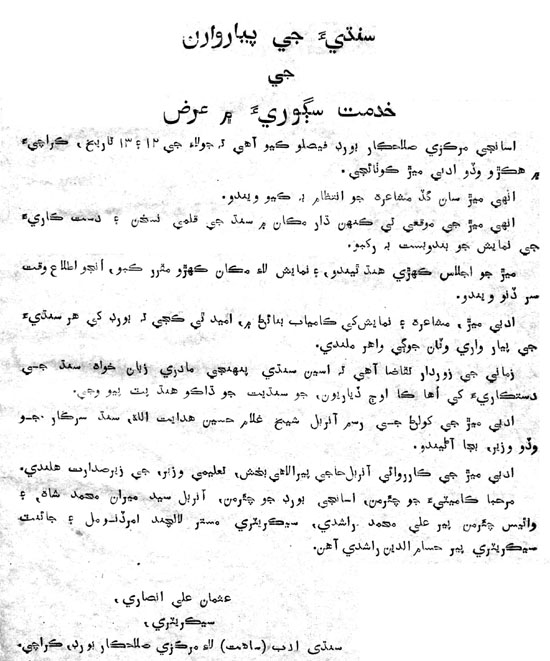 سنڌيءَ جي پياروارن
جي
خدمت سڳوريءَ ۾ عرض
اسانجي مرڪزي صلاحڪار بورڊ فيصلو ڪيو آهي تہ جولاءِ جي ۱۲ ۽ ۱۳ تاريخ، ڪراچيءَ
۾ هڪڙو وڏو ادبي ميڙ ڪوٺائجي.
انهي ميڙ سان گڏ مشاعره جو انتظام بہ ڪيو ويندو.
انهي ميڙ جي موقعي تي ڪنهن ڌار مڪان ۾ سنڌ جي قلمي نسخن ۽ دست ڪاريءَ
جي نمايش جو بندوبست بہ رکبو.
ميڙ جو اجلاس ڪهڙي هنڌ ٿيندو، ۽ نمايش لاءِ مڪان ڪهڙو مقرر ڪبو، اُنجو اطلاع وقت
سر ڏنو ويندو.
ادبي ميڙ، مشاعره ۽ نمايش کي ڪامياب بنائڻ ۾، اميد ٿي ڪجي تہ بورڊ کي هر سنڌيءَ
جي پيار واري وٽان جوڳي واهر ملندي.
زماني جي زوردار تقاضا آهي تہ اسين سنڌي پنهنجي مادري زبان خواه سنڌ جي
دستڪاريءَ کي اُها ڪا اوج ڏياريون، جو سنڌيت جو ڌاڪو هنڌ بہ پيو وڃي.
ادبي ميڙ جي کولڻ جي رسم آنربل شيخ غلام حسين هدايت الله، سنڌ سرڪار جو
وڏو وزير، بجا آڻيندو.
ادبي ميڙ جي ڪارروائي آنربل حاجي پير الاهي بخش، تعليمي وزير، جي زير صدارت هلندي.
مرحبا ڪاميٽيءَ جو چئرمن، اسانجي بورڊ جو چئرمن، آنربل سيد ميران محمد شاھ، ۽
وائيس چئرمن پير علي محمد راشدي، سيڪريٽري مسٽر لالچند امرڏنومل ۽ جائنٽ
سيڪريٽري پير حسام الدين راشدي آهن.
عثمان علي انصاري،
سيڪريٽري،
سنڌي ادب (ساهت) لاءِ مرڪزي صلاحڪار بورڊ، ڪراچي.